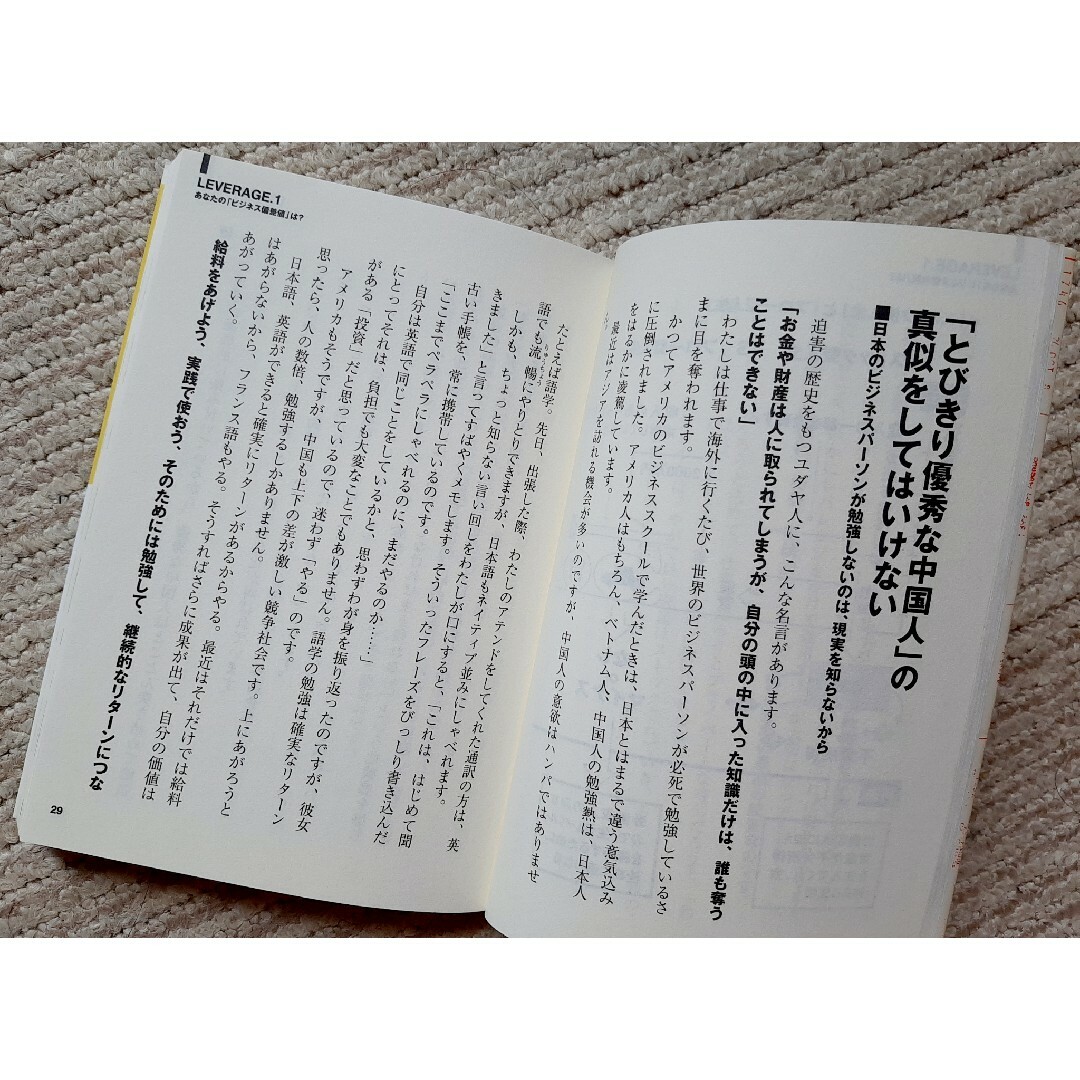 「とびきり優秀な中国人」の
真似をしてはいけない
■日本のビジネスパーソンが勉強しないのは、現実を知らないから
迫害の歴史をもつユダヤ人に、こんな名言があります。
「お金や財産は人に取られてしまうが、自分の頭の中に入った知識だけは、誰も奪う
ことはできない」
わたしは仕事で海外に行くたび、世界のビジネスパーソンが必死で勉強しているさ
まに目を奪われます。
かつてアメリカのビジネススクールで学んだときは、日本とはまるで違う意気込み
に圧倒されました。アメリカ人はもちろん、ベトナム人、中国人の勉強熱は、日本人
をはるかに凌駕しています。
最近はアジアを訪れる機会が多いのですが、中国人の意欲はハンパではありませ
LEVERAGE.1
あなたの「ビジネス偏差値」は?
たとえば語学。先日、出張した際、わたしのアテンドをしてくれた通訳の方は、英
語でも流暢にやりとりできますが、日本語もネイティブ並みにしゃべれます。
しかも、ちょっと知らない言い回しをわたしが口にすると、「これは、はじめて聞
きました」と言ってすばやくメモします。そういったフレーズをびっしり書き込んだ
古い手帳を、常に携帯しているのです。
「ここまでペラペラにしゃべれるのに、まだやるのか……」
自分は英語で同じことをしているかと、思わずわが身を振り返ったのですが、彼女
にとってそれは、負担でも大変なことでもありません。語学の勉強は確実なリターン
がある「投資」だと思っているので、迷わず「やる」のです。
アメリカもそうですが、中国も上下の差が激しい競争社会です。上にあがろうと
思ったら、人の数倍、勉強するしかありません。
日本語、英語ができると確実にリターンがあるからやる。最近はそれだけでは給料
はあがらないから、フランス語もやる。そうすればさらに成果が出て、自分の価値は
あがっていく。
給料をあげよう、実践で使おう、そのためには勉強して、継続的なリターンにつな
29